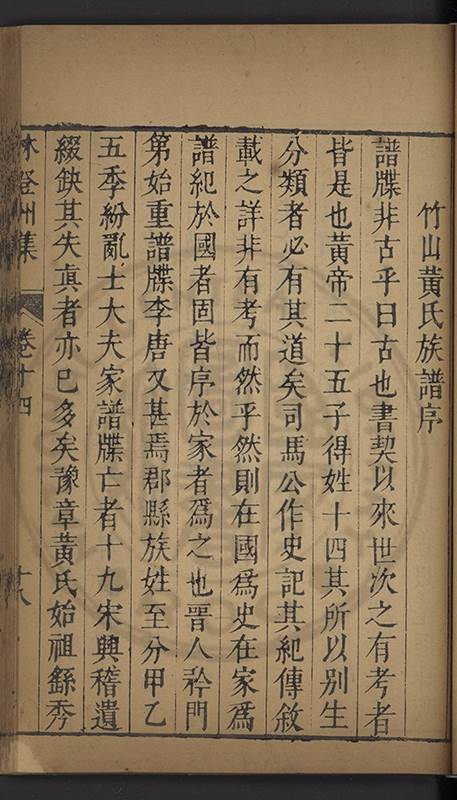 竹山黃氏族譜序
譜牒非古乎曰古也書契以來世次之有考者
皆是也黃帝二十五子得姓十四其所以别生
分類者必有其道矣司馬公作史記其紀傳敘
載之詳非有考而然乎然則在國爲史在家爲
譜紀於國者固皆序於家者爲之也晉人矜門
第始重譜牒李唐又甚焉郡縣族姓至分甲乙
五季紛亂士大夫家譜牒亡者十九宋興稽遺
綴缺其失真者亦已多矣豫章黃氏始祖繇秀
林登州集
卷十四